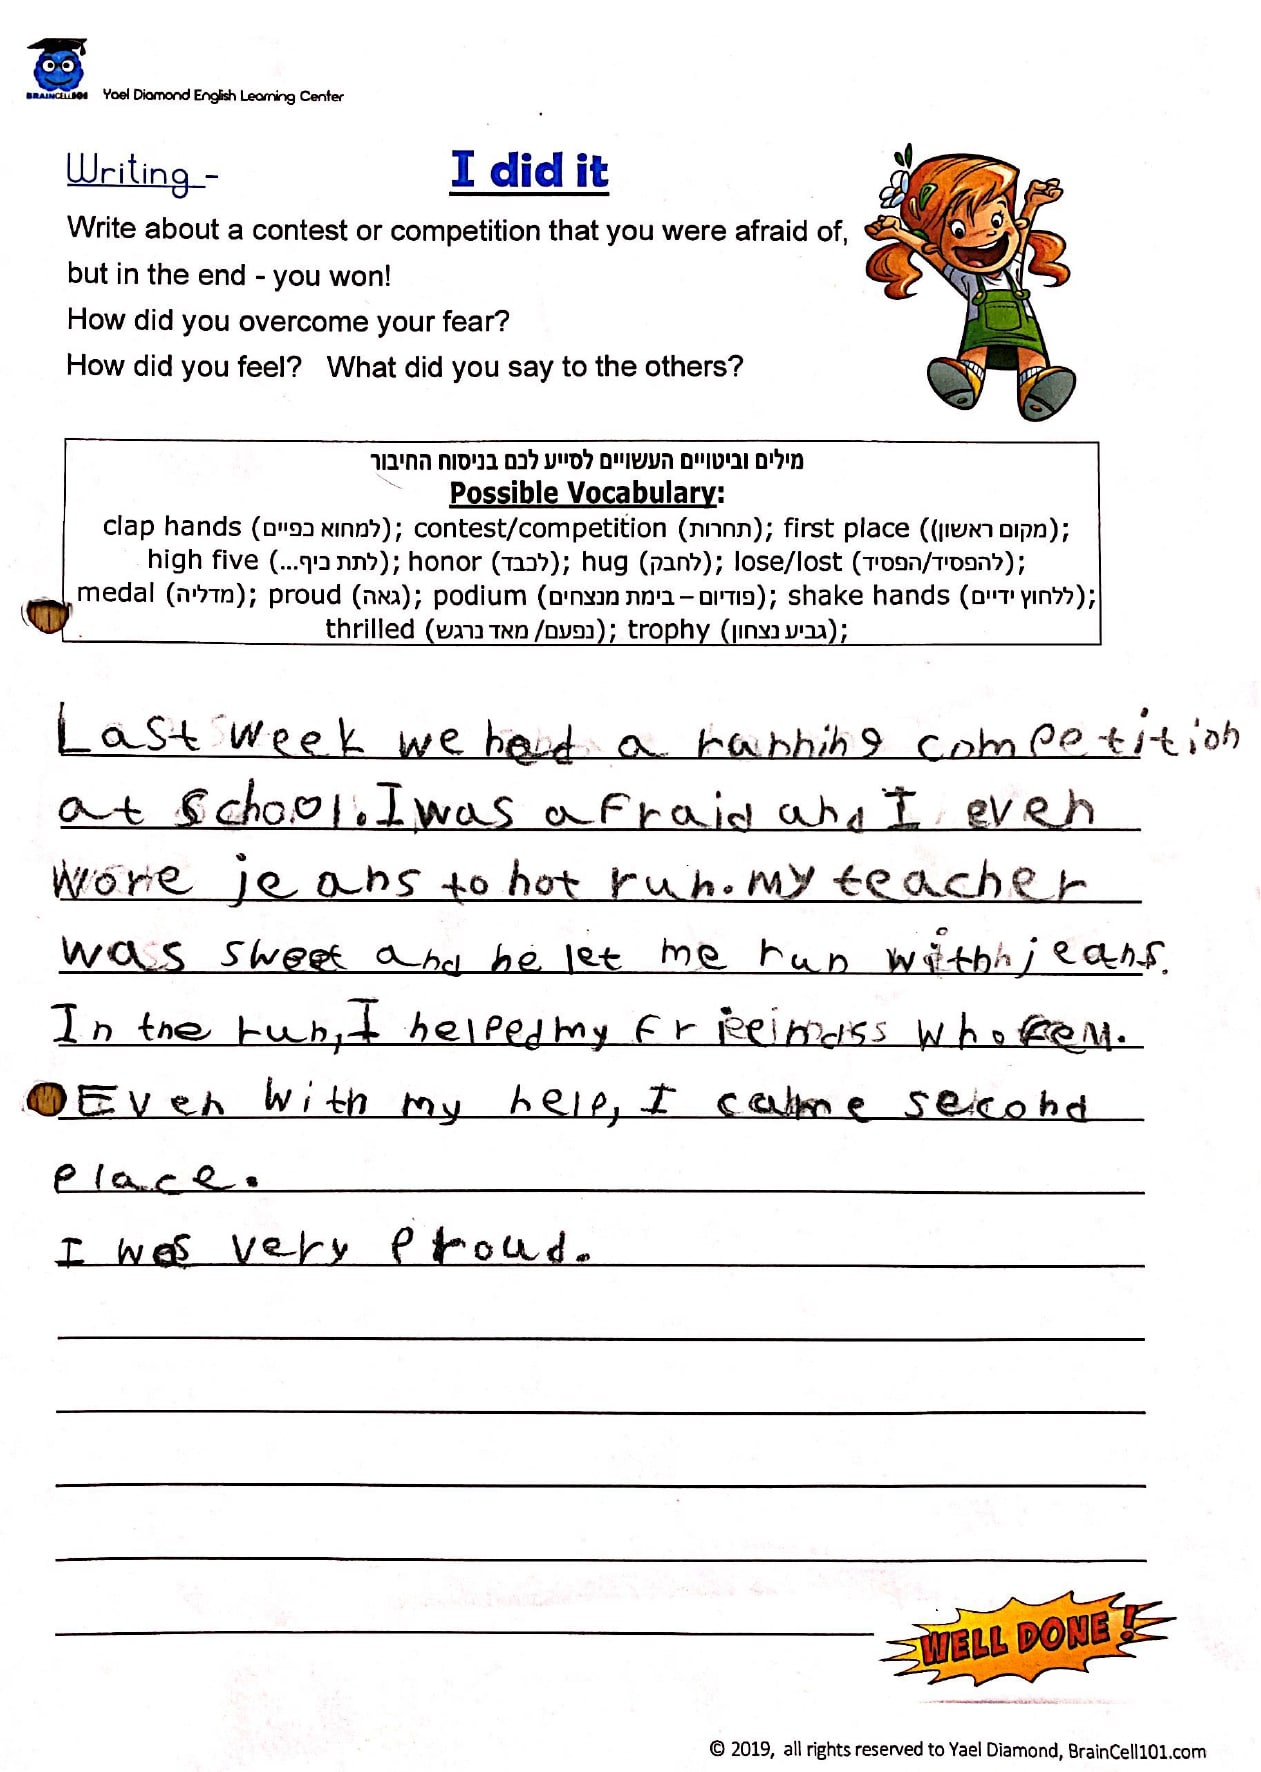 BRAINCELL101
Yael Diamond English Learning Center
Writing - I did it
Write about a contest or competition that you were afraid of,
but in the end - you won!
How did you overcome your fear?
How did you feel? What did you say to the others?
מילים וביטויים העשויים לסייע לכם בניסוח החיבור
Possible Vocabulary:
clap hands (למחוא כפיים); contest/competition (תחרות); first place ((מקום ראשון);
high five (לתת כיף...); honor (לכבד); hug (לחבק); lose/lost (להפסיד/הפסיד);
medal (מדליה); proud (גאה); podium (פודיום – בימת מנצחים); shake hands (ללחוץ ידיים);
thrilled (נפעם/ מאד נרגש); trophy (גביע נצחון);
Last week we had a running competition
at school. I was afraid and I even
wore jeans to not run. My teacher
was sweet and he let me run with jeans.
In the run, I helped my who fell.
Even with my help, I came second
place.
I was very proud.
WELL DONE!
© 2019, all rights reserved to Yael Diamond, BrainCell101.com